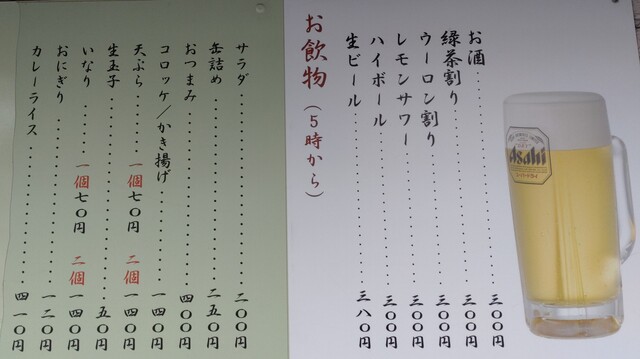 お飲物（５時から）
お酒 三〇〇円
緑茶割り 三〇〇円
ウーロン割り 三〇〇円
レモンサワー 三〇〇円
ハイボール 三〇〇円
生ビール 三八〇円
Asahi
サラダ 二〇〇円
缶詰め 二五〇円
おつまみ 四〇〇円
コロッケ／かき揚げ 一四〇円
天ぷら 一個七〇円 二個一四〇円
生玉子 五〇円
いなり 一個七〇円 二個一四〇円
おにぎり 一二〇円
カレーライス 四一〇円